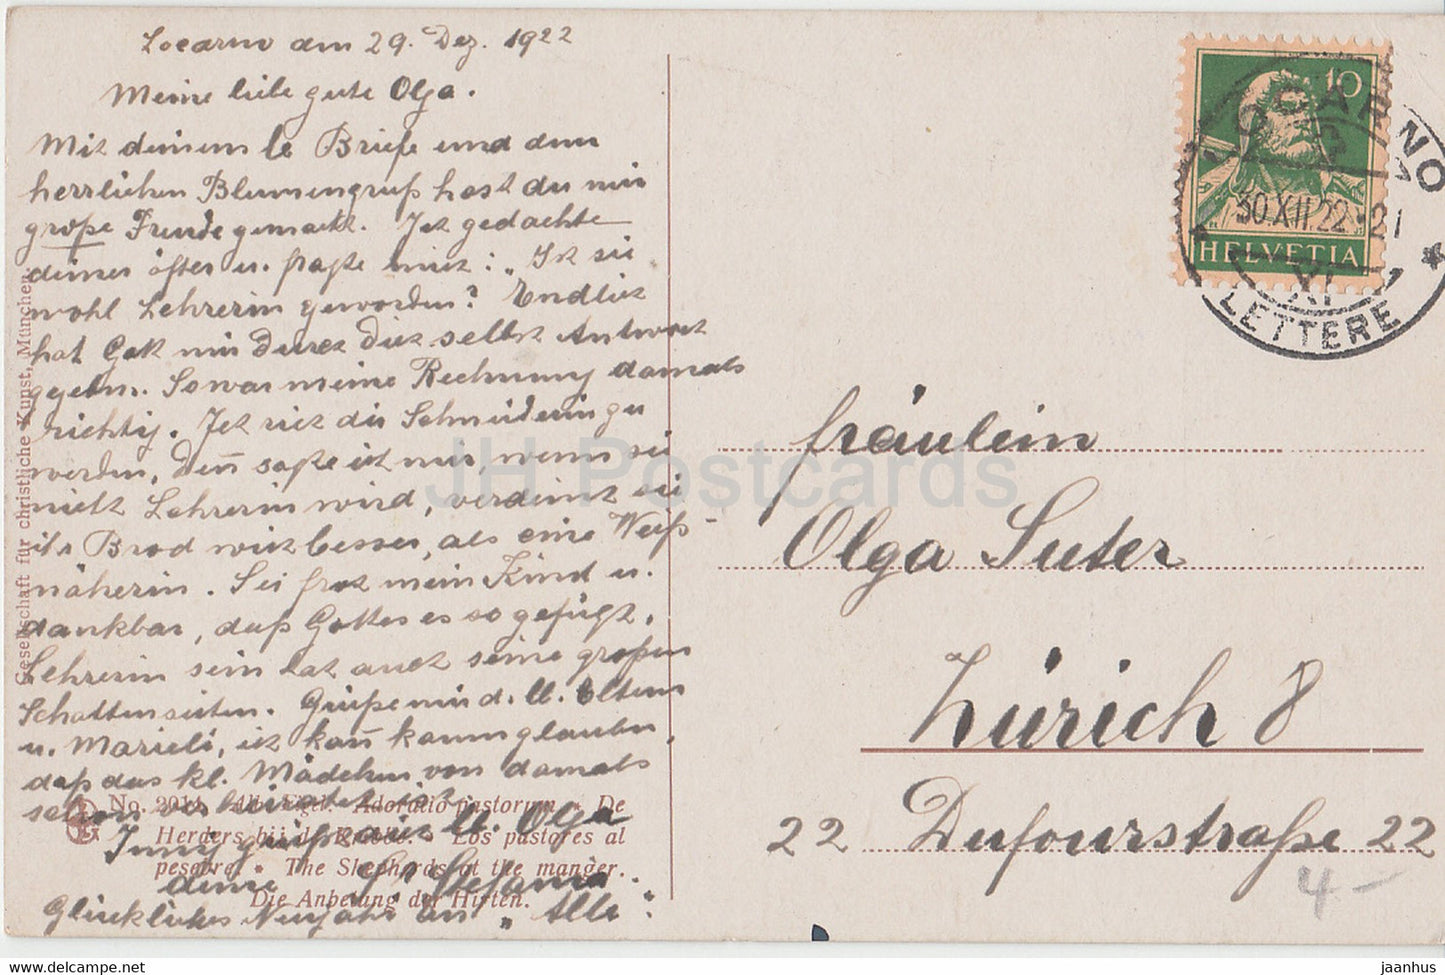 Locarno am 29. Dez. 1922
Meine liebe gute Olga.
Mit deinem lb Briefe und dem
herrlichen Blumengruß hast du mir
große Freude gemacht. Ich gedachte
deiner öfter u. fragte mich: „Ist sie
wohl Lehrerin geworden? Endlich
hat Gott mir durch Dich selbst Antwort
gegeben. So war meine Rechnung damals
richtig. Ich riet dir Schneiderin zu
werden, den̄ sagte ich mir, wenn sie
nicht Lehrerin wird, verdient sie
ihr Brod viel besser, als eine Weiß-
näherin. Sei froh mein Kind u.
dankbar, daß Gott es so gefügt.
Lehrerin sein hat auch seine großen
Schattenseiten. Grüße mir d. lb. Eltern
u. Marieli, ich kan̄ kaum glauben,
daß das kl. Mädchen von damals
schon verheiratet ist.
Innig grüßt dich lb. Olga
deine Sr Stefania.
Glückliches Neujahr an „Alle".
Gesellschaft für christliche Kunst, München.
No. 2014. Alb. Egel. Adoratio pastorum * De
Herders bij de Kribbe. * Los pastores al
pesebre * The Shepherds at the manger.
Die Anbetung der Hirten.
10
HELVETIA
LOCARNO
30.XII.22-21
XI
LETTERE
fräulein
Olga Suter
Zürich 8
22 Dufourstraße 22
4-
JH Postcards
jaanhus.com
jaanhus